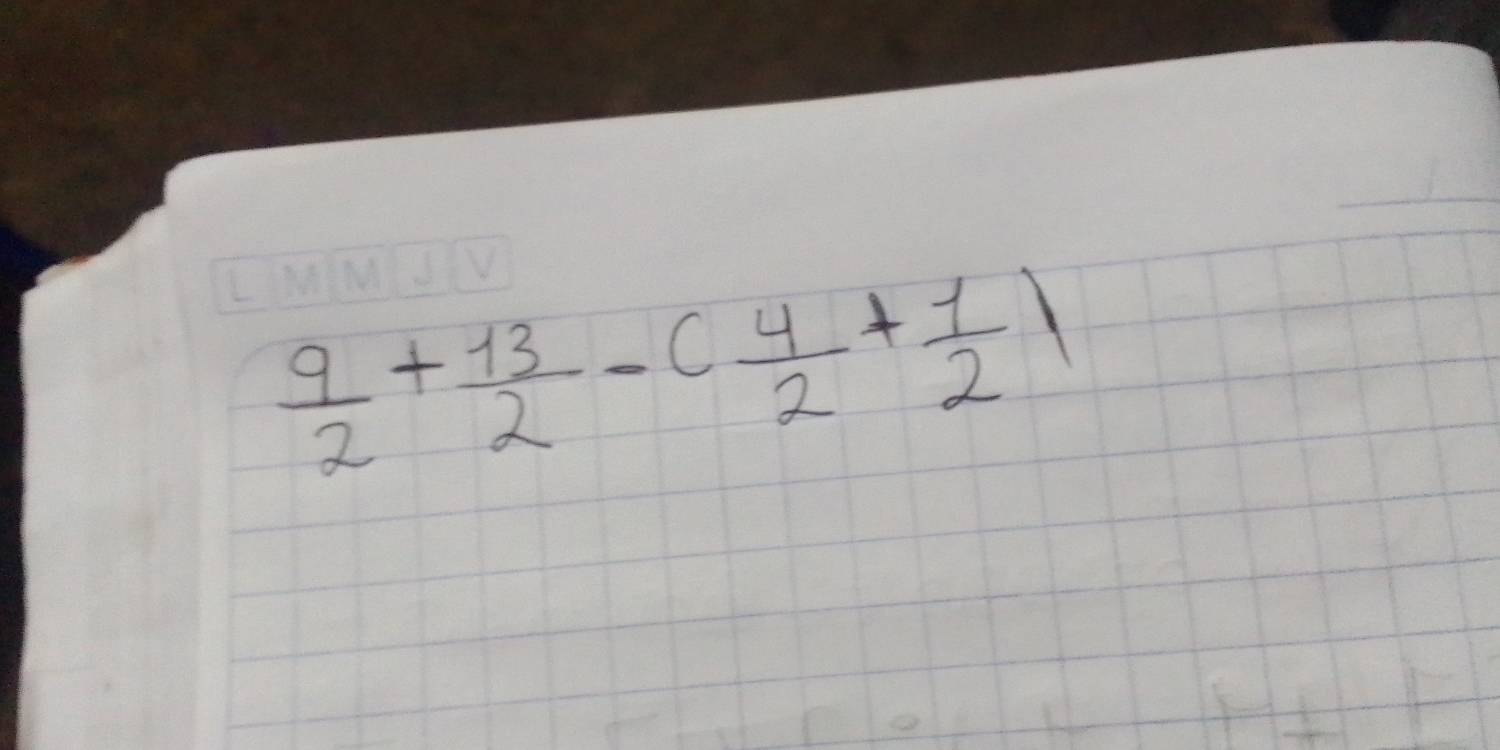 L M M J V
9/2 + 13/2 - ( 4/2 + 1/2 )